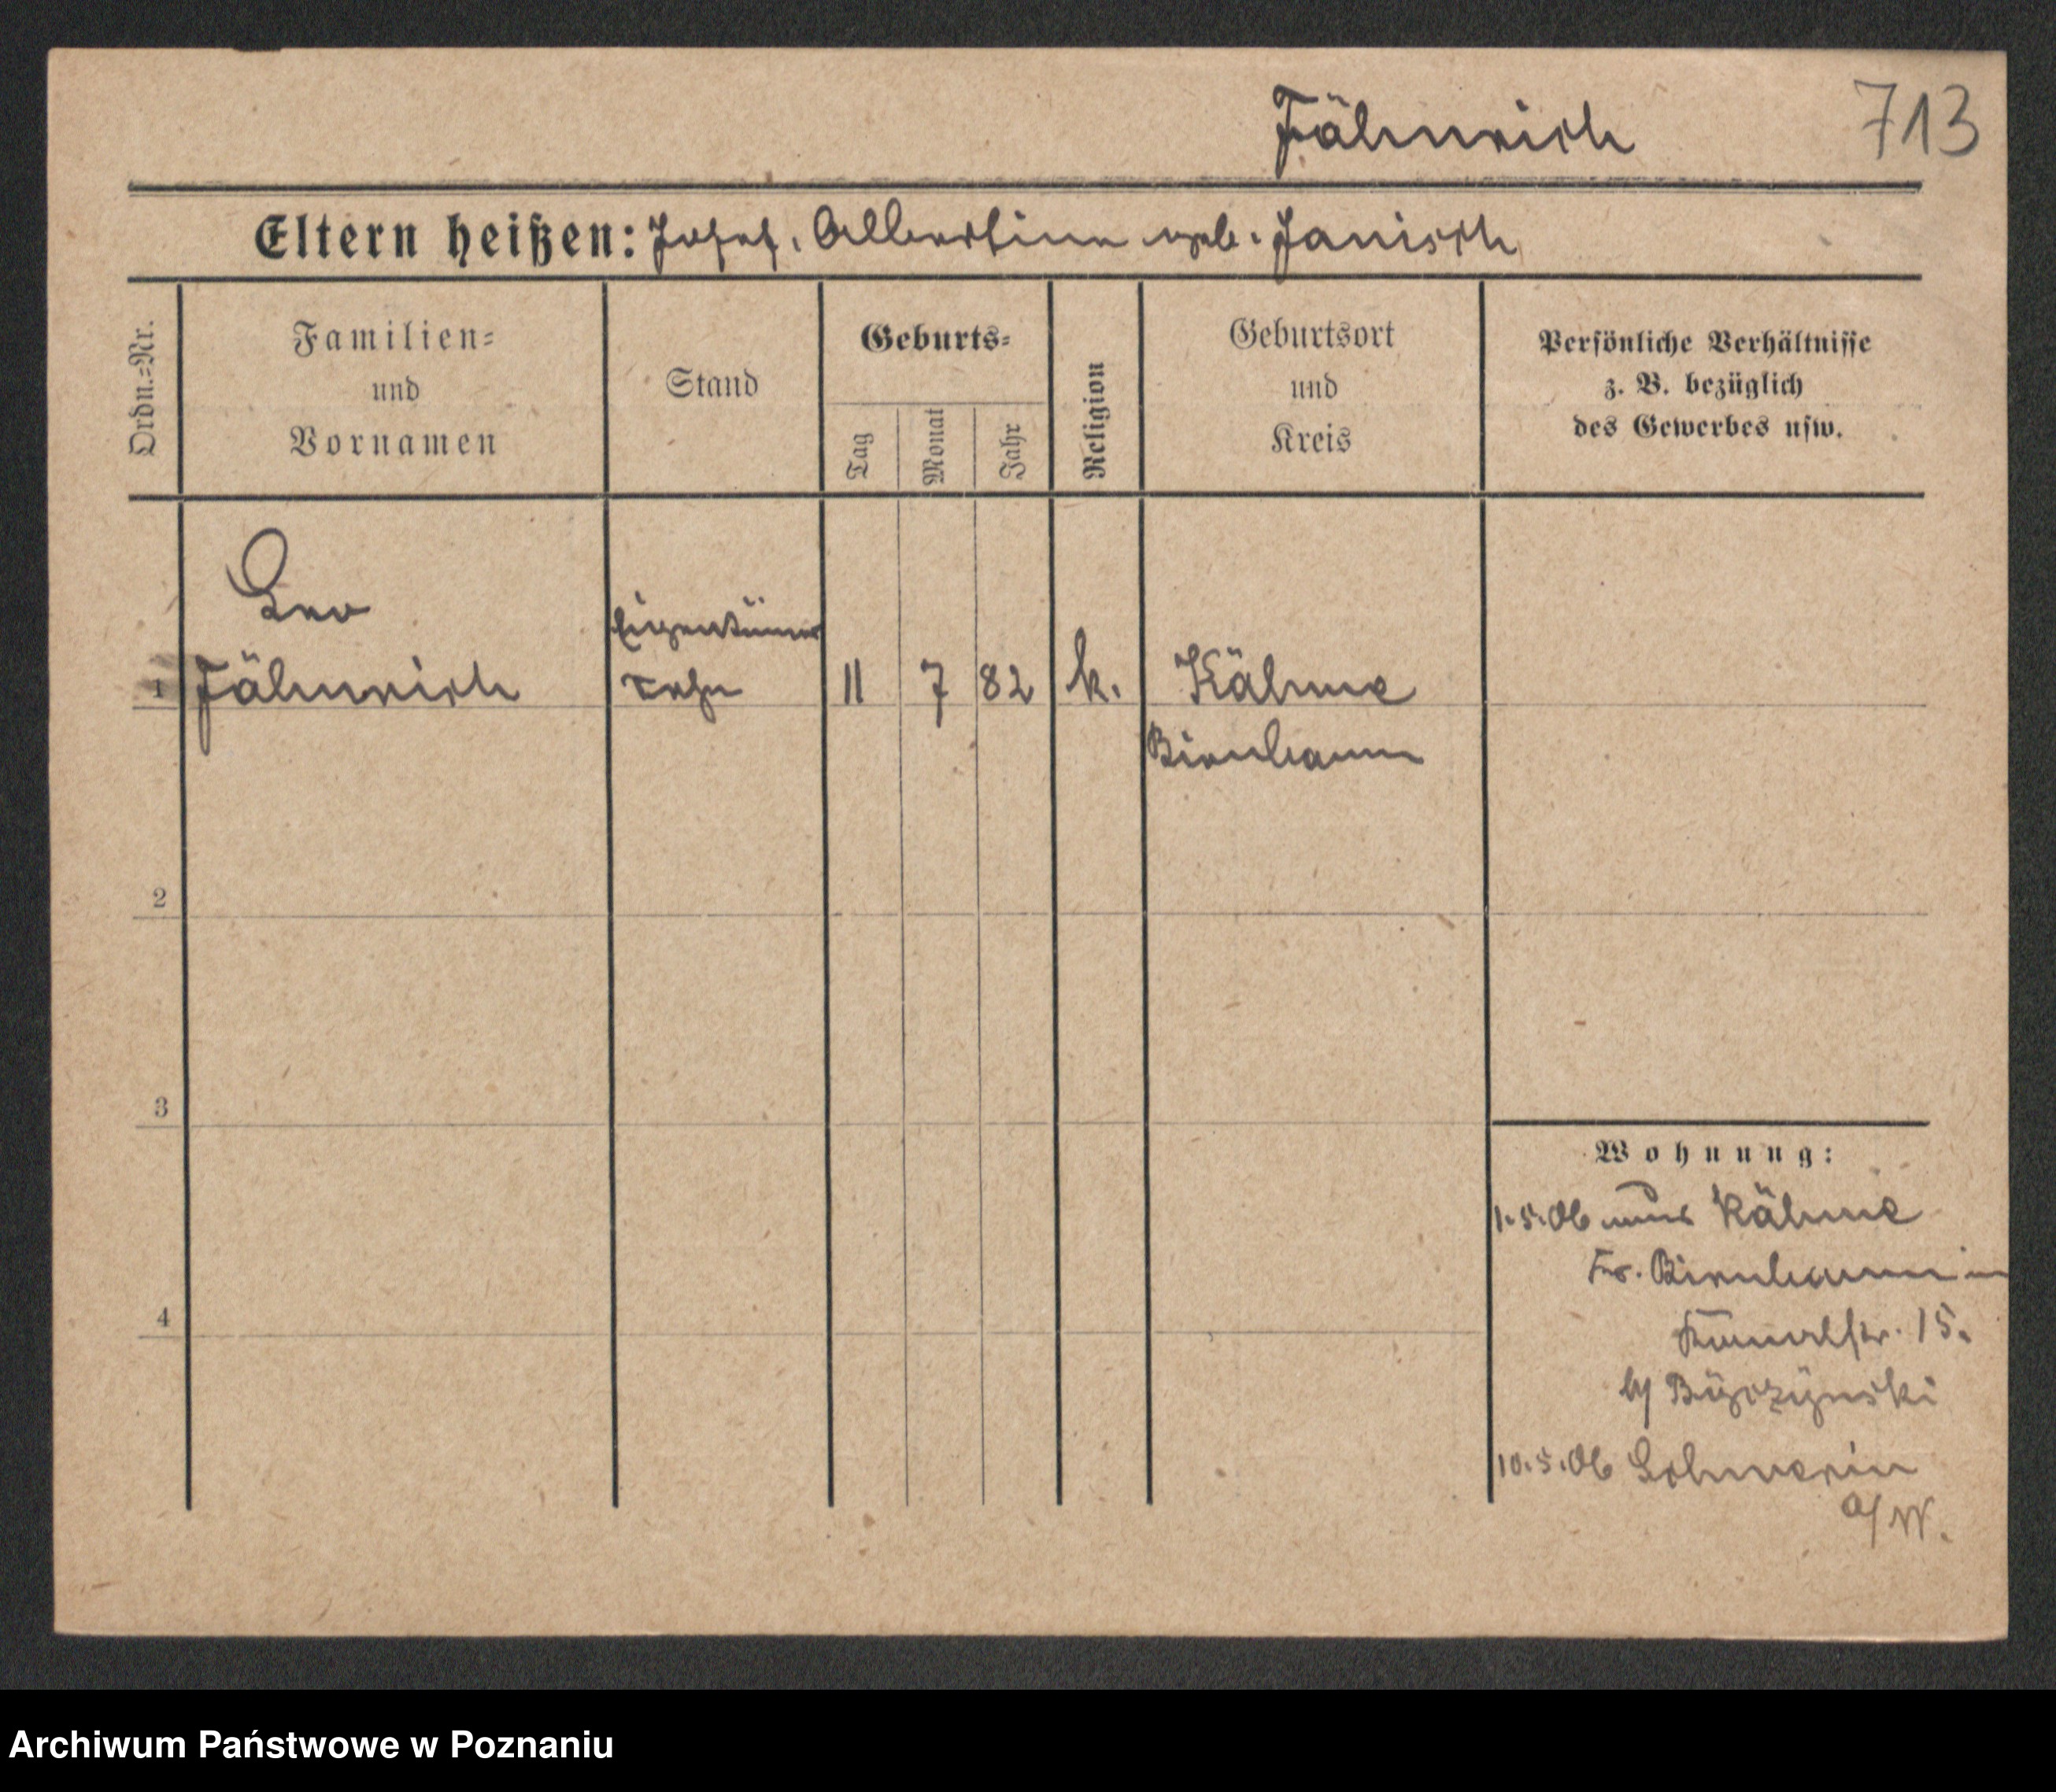 Fähnrich
713
Eltern heißen: Josef, Albertine geb. Janisch
Ordn.-Nr.
Familien-
und
Vornamen
Stand
Geburts-
Tag
Monat
Jahr
Religion
Geburtsort
und
Kreis
Persönliche Verhältnisse
z. B. bezüglich
des Gewerbes usw.
Leo
Eigentümer
1 Fähnrich sohn 11 7 82 k. Kähme
Birnbaum
2
3
4
Wohnung:
1.5.06 aus Kähme
Kr. Birnbaum in
Kanalstr. 15.
b/
10.5.06 Schwerin
a/W.
Archiwum Państwowe w Poznaniu